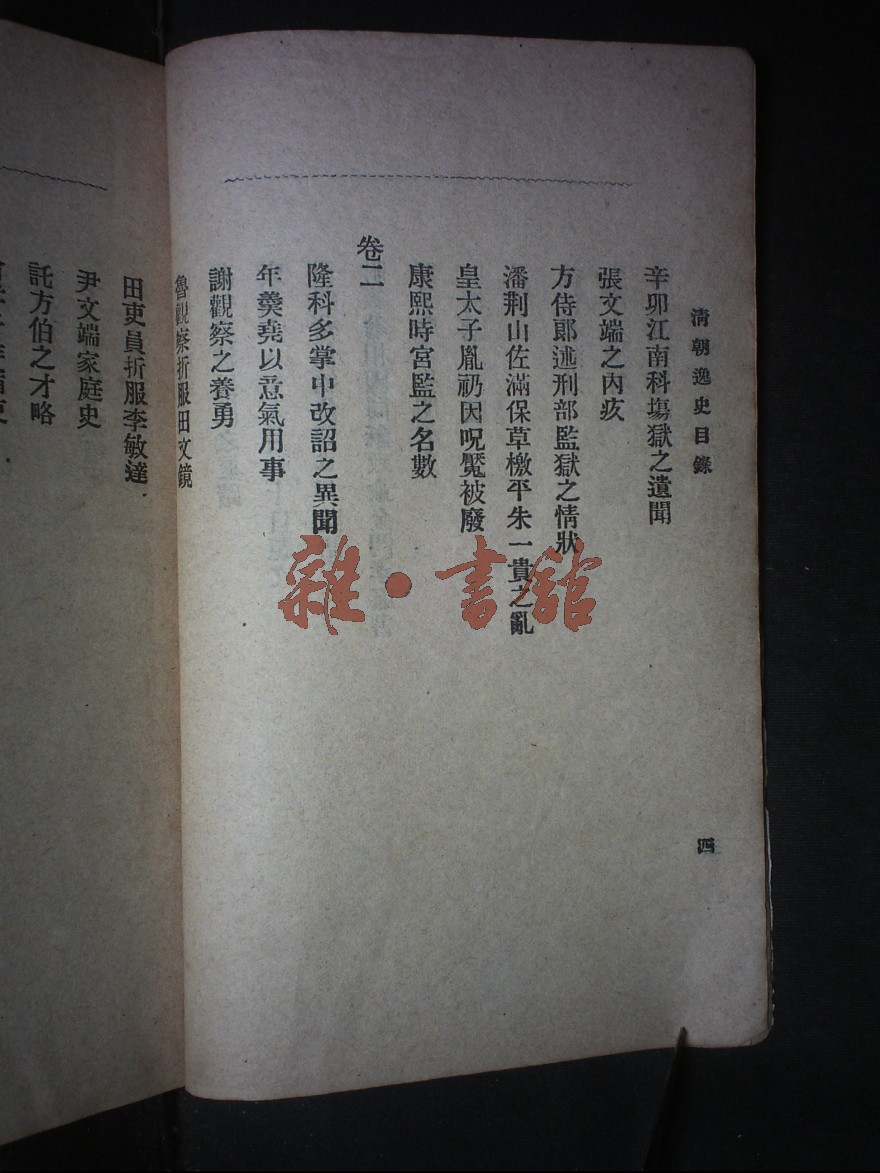 清朝逸史目錄
四
辛卯江南科塲獄之遺聞
張文端之內疚
方侍郞述刑部監獄之情狀
潘荆山佐滿保草檄平朱一貴之亂
皇太子胤礽因呪魘被廢
康熙時宮監之名數
卷二
隆科多掌中改詔之異聞
年羹堯以意氣用事
謝觀察之養勇
魯觀察折服田文鏡
田吏員折服李敏達
尹文端家庭史
託方伯之才略
雜·書館